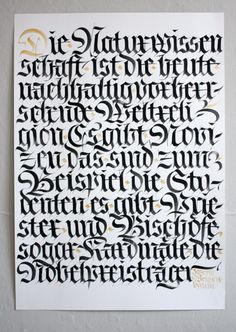 Die Naturwissen
schaft ist die heute
nachhaltig vorherr
schende Weltreli
gion Es gibt Novi
zen das sind zum
Beispiel die Stu
denten es gibt Prie
ster und Bischöfe
sogar Kardinäle die
Nobelpreisträger